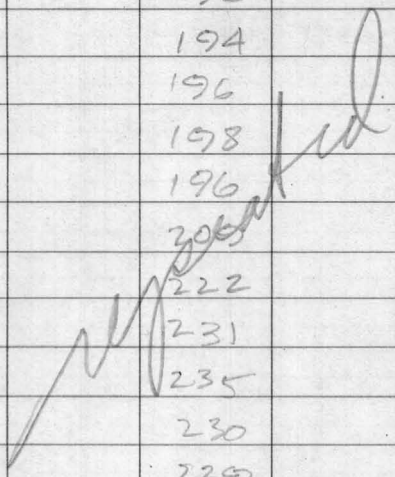 194
196
198
196
222
231
235
230
repeated